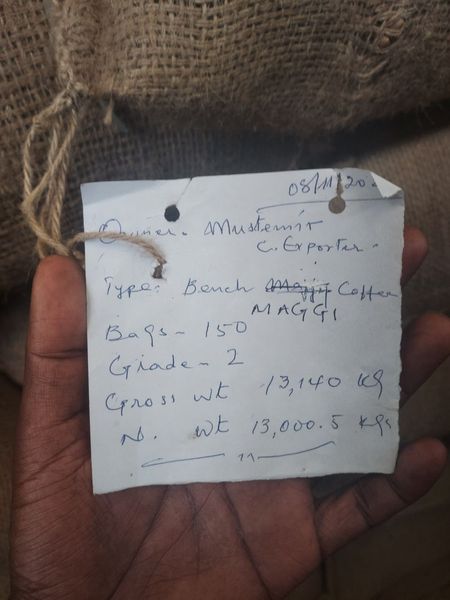 08/11/20
Owner. Mustemir
C. Exporter.
Type: Bench Coffee
MAGGI
Bags- 150
Grade- 2
Gross wt 13,140 Kg
N. wt 13,000.5 Kgs